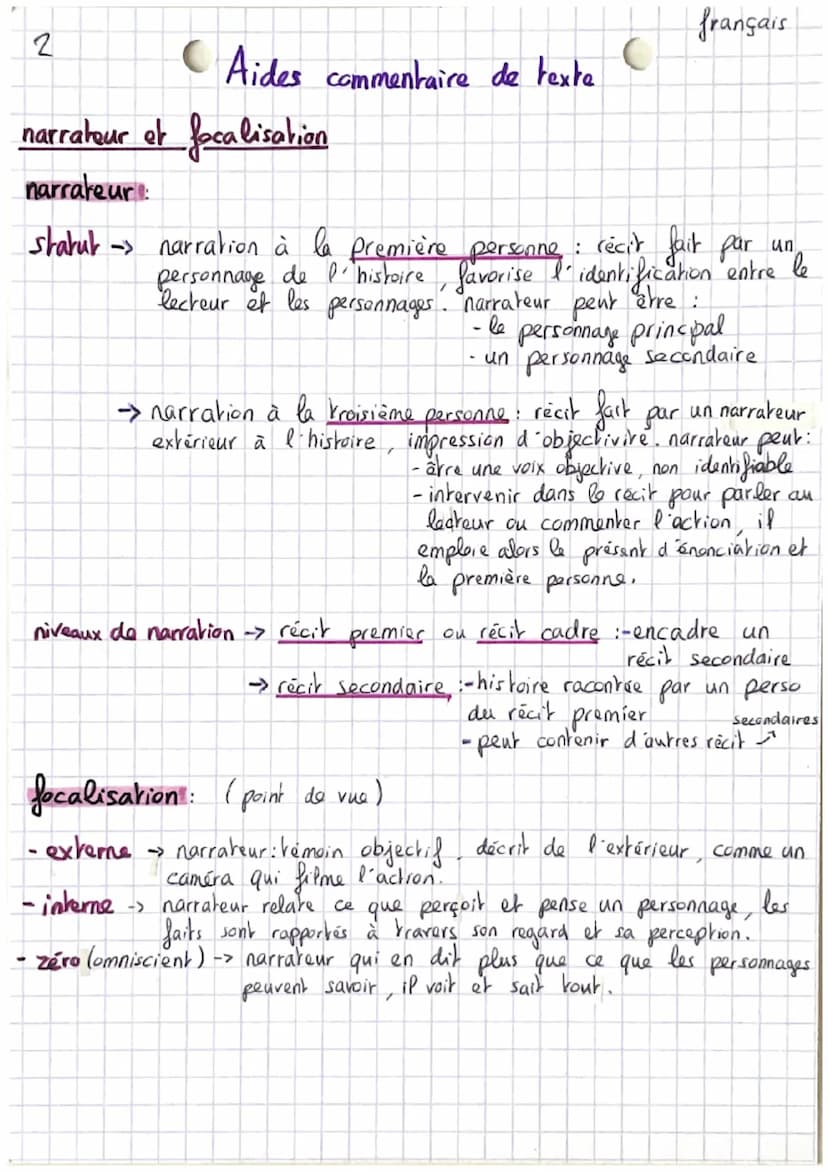 français
2
Aides commentaire de texte
narrateur et focalisation
narrateur :
statut -> narration à la première personne : récit fait par un
personnage de l'histoire, favorise l'identification entre le
lecteur et les personnages. narrateur peut être :
- le personnage principal
- un personnage secondaire
-> narration à la troisième personne : récit fait par un narrateur
extérieur à l'histoire, impression d'objectivité. narrateur peut :
- être une voix objective, non identifiable
- intervenir dans le récit pour parler au
lecteur ou commenter l'action, il
emploie alors le présent d'énonciation et
la première personne.
niveaux de narration -> récit premier ou récit cadre :-encadre un
récit secondaire
-> récit secondaire :-histoire racontée par un perso
du récit premier
secondaires
- peut contenir d'autres récit ↗
focalisation : (point de vue)
- externe -> narrateur : témoin objectif, décrit de l'extérieur, comme un
caméra qui filme l'action.
- interne -> narrateur relate ce que perçoit et pense un personnage, les
faits sont rapportés à travers son regard et sa perception.
- zéro (omniscient) -> narrateur qui en dit plus que ce que les personnages
peuvent savoir, il voit et sait tout.